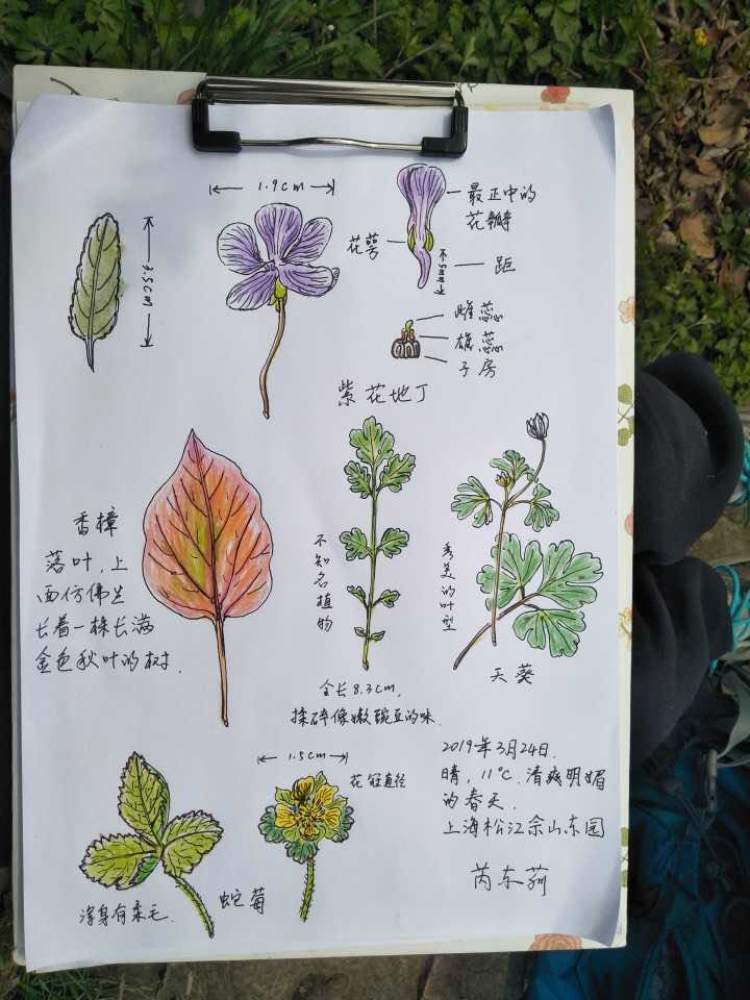 1.9cm
3.5cm
最正中的
花瓣
花萼
距
雌蕊
雄蕊
子房
紫花地丁
香樟
落叶,上
面仿佛生
长着一株长满
金色秋叶的树.
不知名植物
全长8.3cm,
揉碎像嫩豌豆的味.
秀美的叶型
天葵
1.5cm
花冠直径
蛇莓
浑身有柔毛.
2019年3月24日.
晴,11℃.清爽明媚
的春天.
上海松江佘山东园
芮东莉